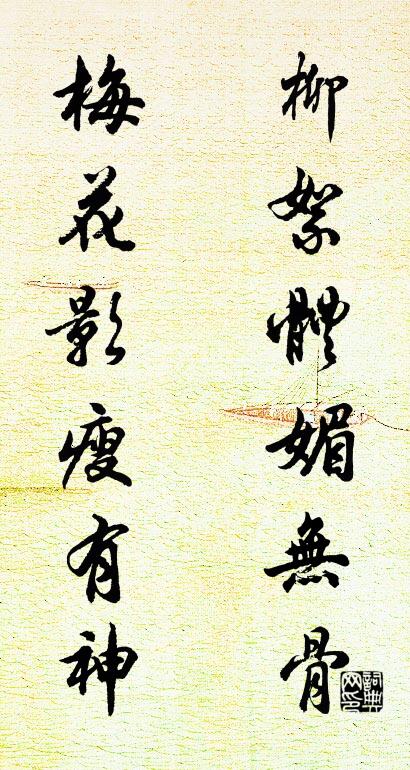 柳絮體媚無骨
梅花影瘦有神
詞典网印